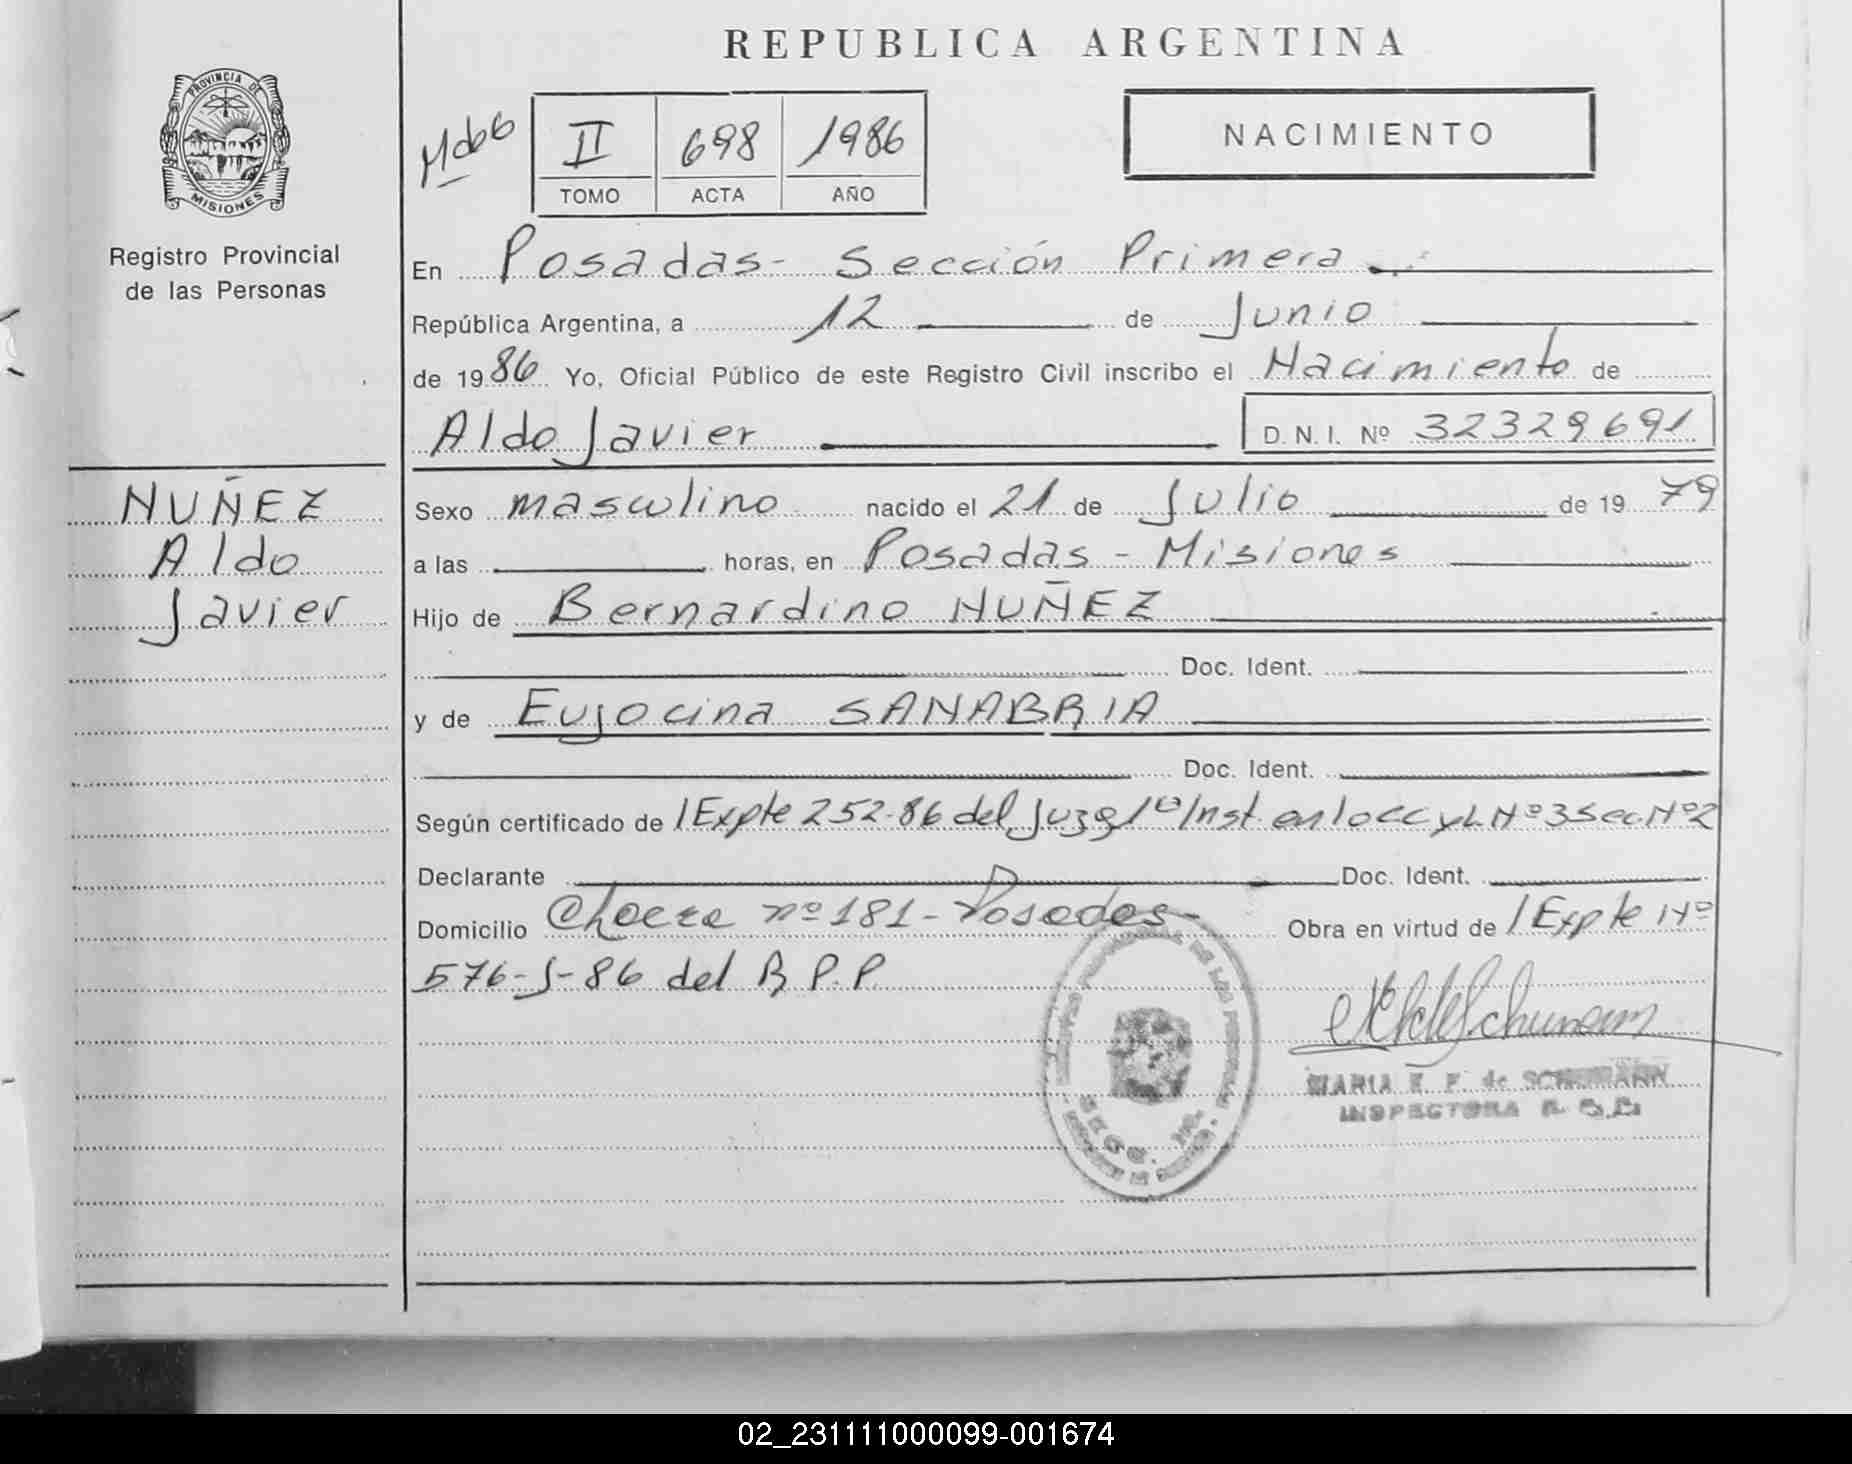 REPUBLICA ARGENTINA
PROVINCIA DE
MISIONES
Registro Provincial
de las Personas
II 698 1986
TOMO ACTA AÑO
NACIMIENTO
En Posadas - Sección Primera
República Argentina, a 12 de Junio
de 1986 Yo, Oficial Público de este Registro Civil inscribo el Nacimiento de
Aldo Javier D. N. I. Nº 32329691
NUÑEZ
Aldo
Javier
Sexo masculino nacido el 21 de Julio de 1979
a las horas, en Posadas - Misiones
Hijo de Bernardino NUÑEZ
Doc. Ident.
y de Eujocina SANABRIA
Doc. Ident.
Según certificado de /Expte 252-86 del Juzg 1º Inst en lo CC y L Nº 3 Sec. Nº 2
Declarante Doc. Ident.
Domicilio Chacra nº 181 - Posadas - Obra en virtud de /Expte Nº
576-J-86 del R P. P.
MARIA E. F. de SCHUMANN
INSPECTORA
02_231111000099-001674